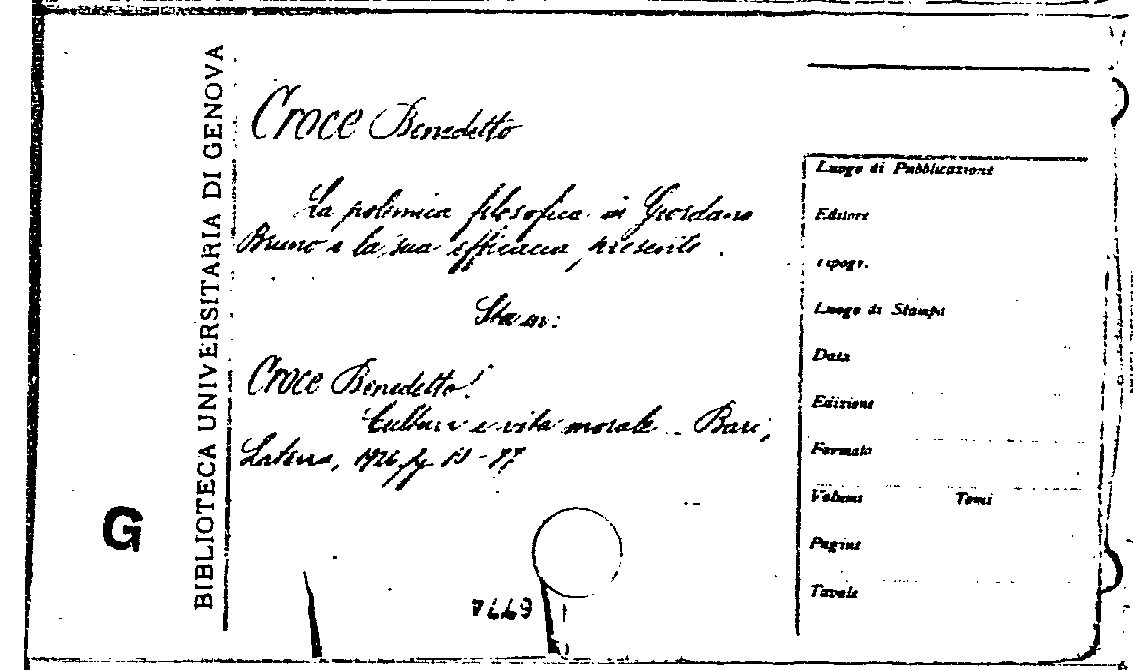 BIBLIOTECA UNIVERSITARIA DI GENOVA
G
Croce Benedetto
La polemica filosofica in Giordano
Bruno e la sua efficacia presente.
Sta in:
Croce Benedetto:
Cultura e vita morale - Bari,
Laterza, 1926, pp
Luogo di Pubblicazione
Editore
Tipogr.
Luogo di Stampa
Data
Edizione
Formato
Volumi Tomi
Pagine
Tavole